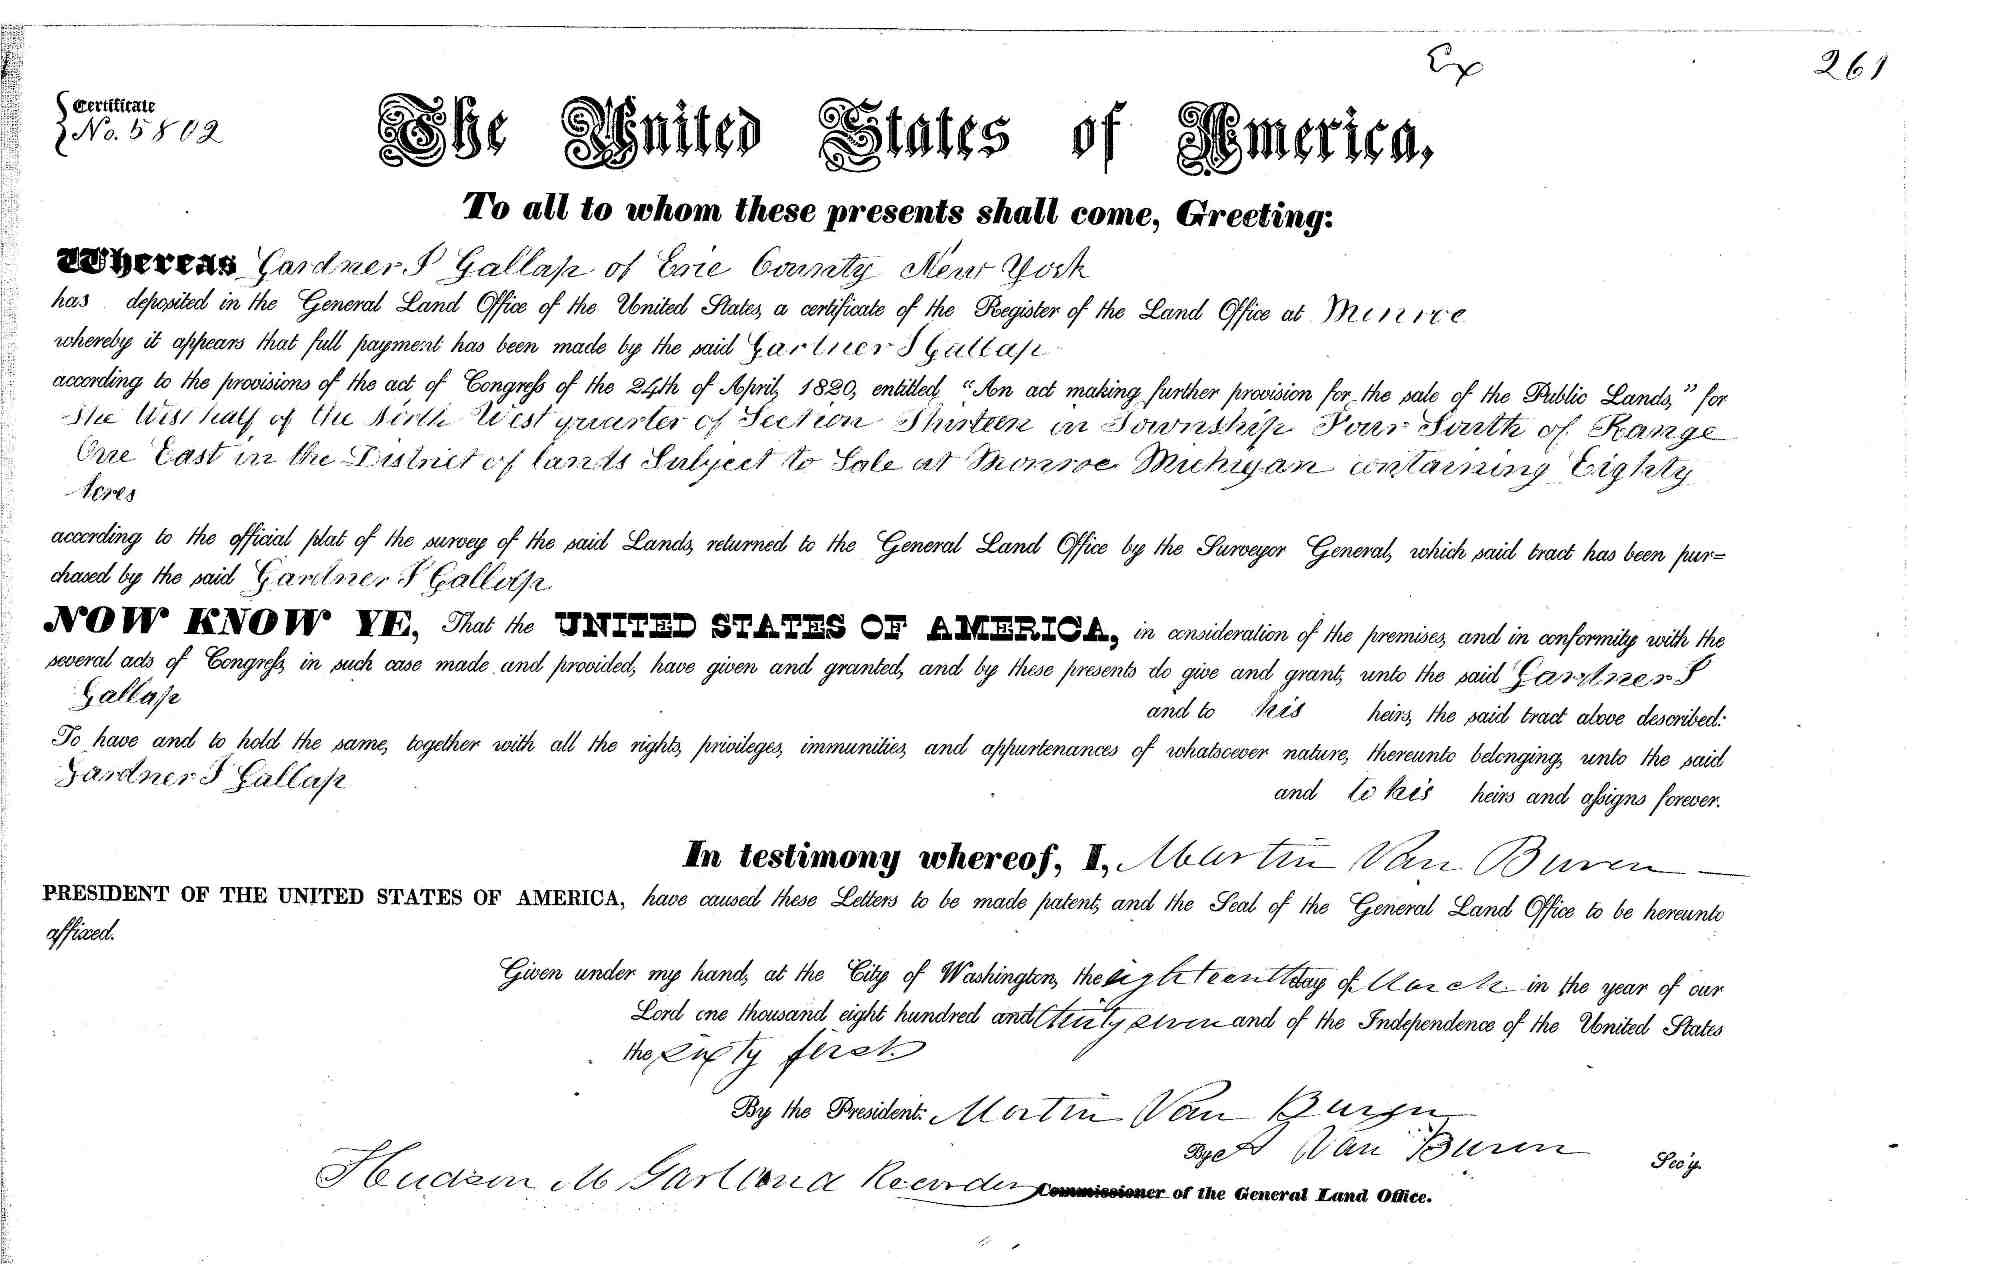 Ex
261
Certificate
No. 5802
The United States of America,
To all to whom these presents shall come, Greeting:
Whereas Gardner S Gallap of Erie County New York
has deposited in the General Land Office of the United States, a certificate of the Register of the Land Office at Monroe
whereby it appears that full payment has been made by the said Gardner S Gallap
according to the provisions of the act of Congress of the 24th of April, 1820, entitled, "An act making further provision for the sale of the Public Lands," for
The West half of the North West quarter of Section Thirteen in Township Four South of Range
One East in the District of lands Subject to Sale at Monroe Michigan containing Eighty
Acres
according to the official plat of the survey of the said Lands, returned to the General Land Office by the Surveyor General, which said tract has been pur=
chased by the said Gardner S Gallap
NOW KNOW YE, That the UNITED STATES OF AMERICA, in consideration of the premises, and in conformity with the
several acts of Congress, in such case made and provided, have given and granted, and by these presents do give and grant, unto the said Gardner S
Gallap
and to his heirs, the said tract above described:
To have and to hold the same, together with all the rights, privileges, immunities, and appurtenances of whatsoever nature, thereunto belonging, unto the said
Gardner S Gallap
and to his heirs and assigns forever.
In testimony whereof, I, Martin Van Buren
PRESIDENT OF THE UNITED STATES OF AMERICA, have caused these Letters to be made patent, and the Seal of the General Land Office to be hereunto
affixed.
Given under my hand, at the City of Washington, the eighteenth day of March in the year of our
Lord one thousand eight hundred and thirty seven and of the Independence of the United States
the sixty first
By the President: Martin Van Buren
By A Van Buren Sec'y.
Hudson M Garland Recorder Commissioner of the General Land Office.